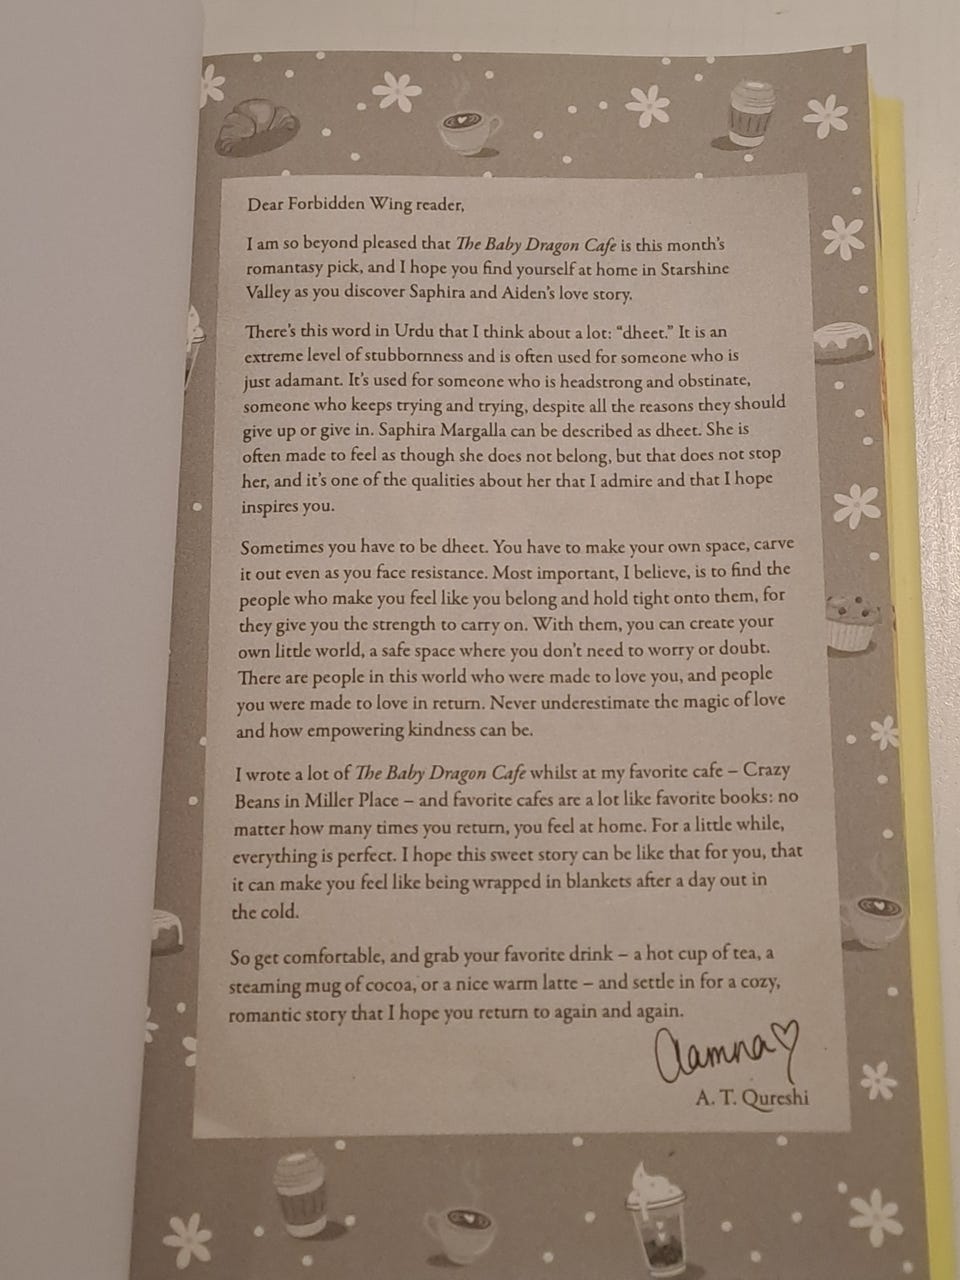 Dear Forbidden Wing reader,
I am so beyond pleased that The Baby Dragon Cafe is this month's
romantasy pick, and I hope you find yourself at home in Starshine
Valley as you discover Saphira and Aiden's love story.
There's this word in Urdu that I think about a lot: "dheet." It is an
extreme level of stubbornness and is often used for someone who is
just adamant. It's used for someone who is headstrong and obstinate,
someone who keeps trying and trying, despite all the reasons they should
give up or give in. Saphira Margalla can be described as dheet. She is
often made to feel as though she does not belong, but that does not stop
her, and it's one of the qualities about her that I admire and that I hope
inspires you.
Sometimes you have to be dheet. You have to make your own space, carve
it out even as you face resistance. Most important, I believe, is to find the
people who make you feel like you belong and hold tight onto them, for
they give you the strength to carry on. With them, you can create your
own little world, a safe space where you don't need to worry or doubt.
There are people in this world who were made to love you, and people
you were made to love in return. Never underestimate the magic of love
and how empowering kindness can be.
I wrote a lot of The Baby Dragon Cafe whilst at my favorite cafe – Crazy
Beans in Miller Place – and favorite cafes are a lot like favorite books: no
matter how many times you return, you feel at home. For a little while,
everything is perfect. I hope this sweet story can be like that for you, that
it can make you feel like being wrapped in blankets after a day out in
the cold.
So get comfortable, and grab your favorite drink – a hot cup of tea, a
steaming mug of cocoa, or a nice warm latte – and settle in for a cozy,
romantic story that I hope you return to again and again.
Aamna
A. T. Qureshi